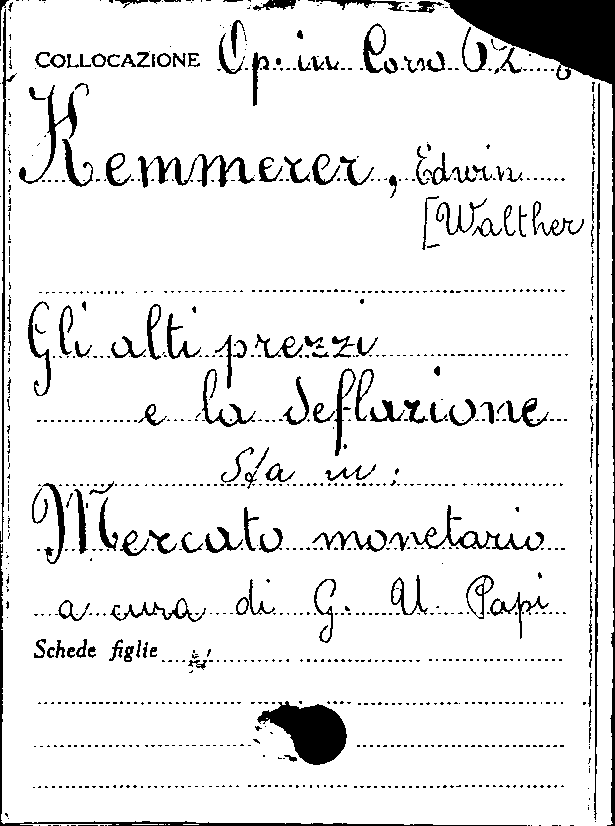 COLLOCAZIONE Op. in Corso 62
Kemmerer, Edwin
[Walther
Gli alti prezzi
e la deflazione
Sta in:
Mercato monetario
a cura di G. U. Papi
Schede figlie